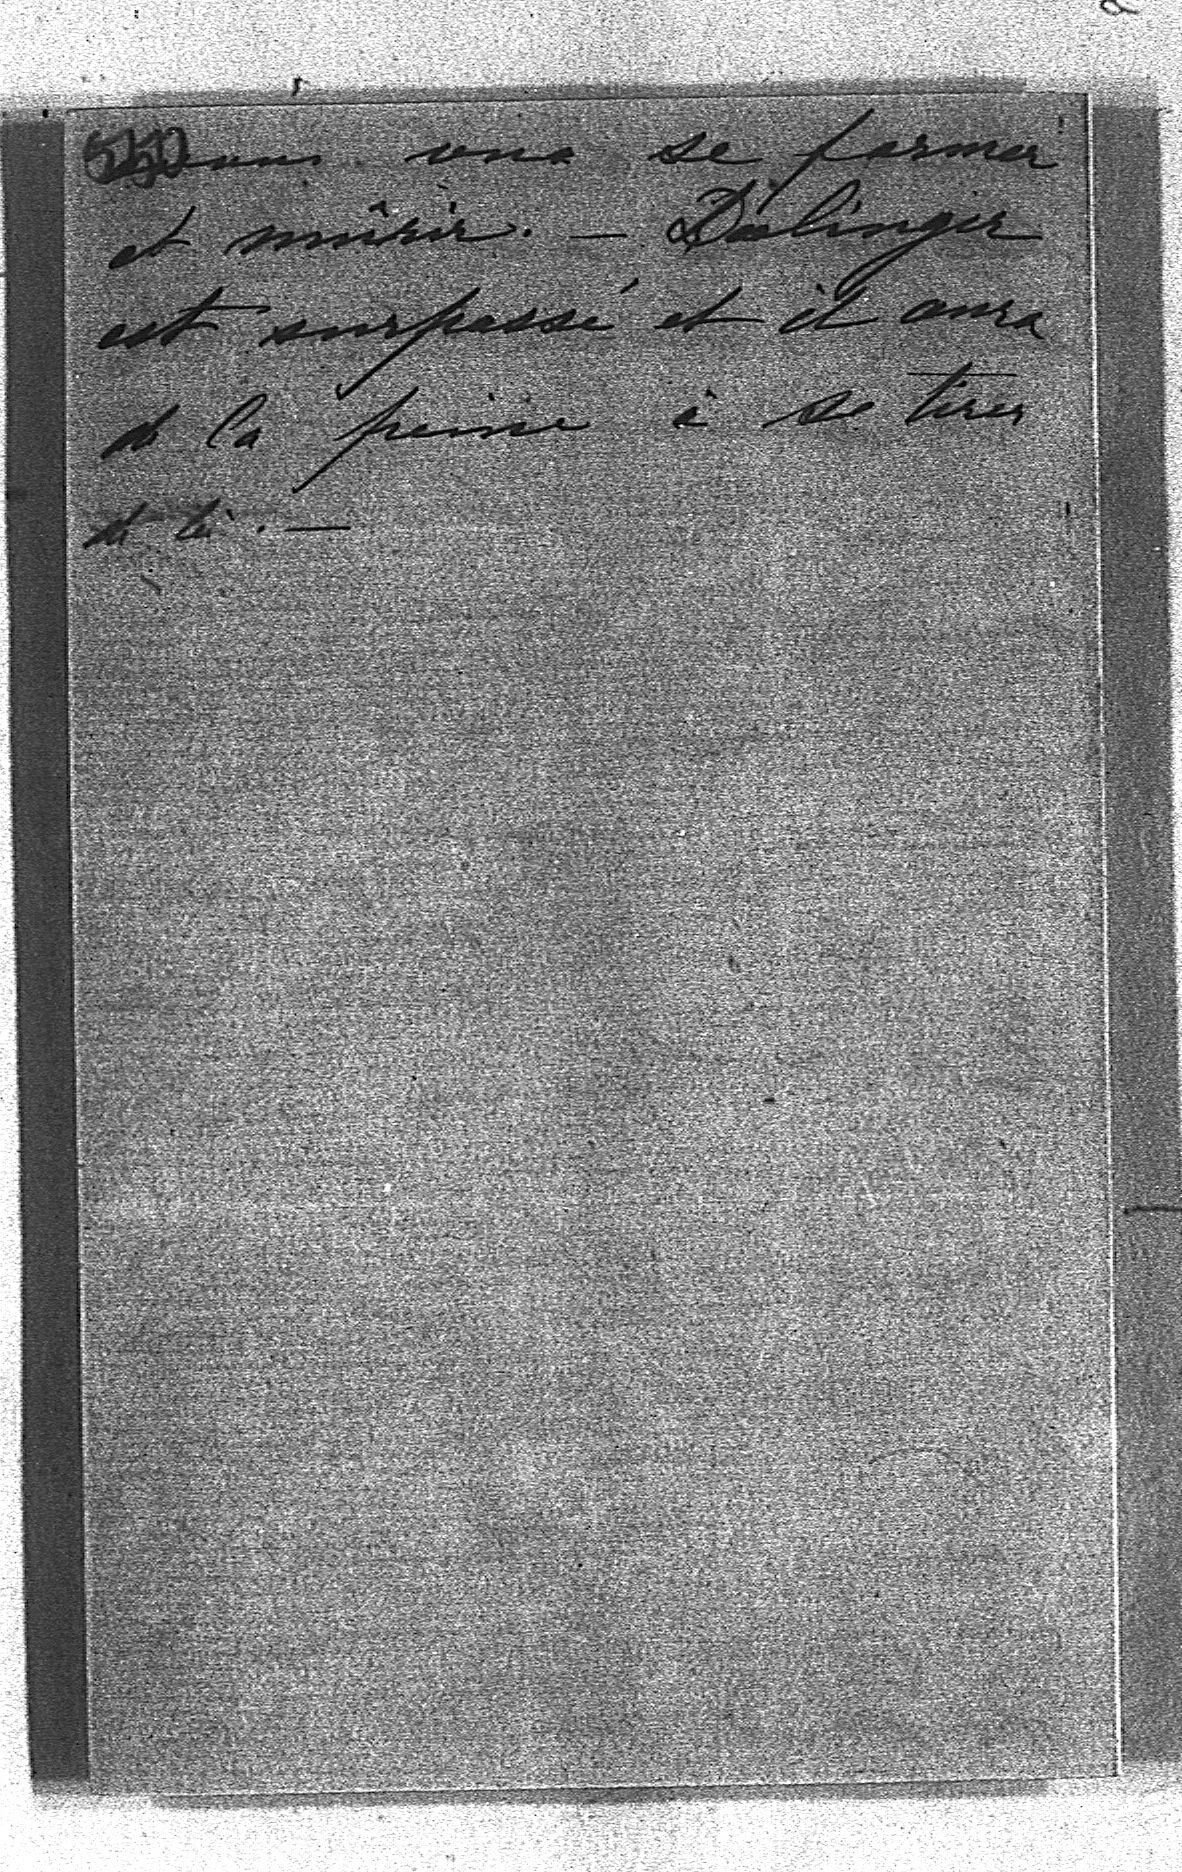 550 vous vous se former
et mûrir. — Dœlinger
est surpassé et il aura
de la peine à se tirer
de là. —